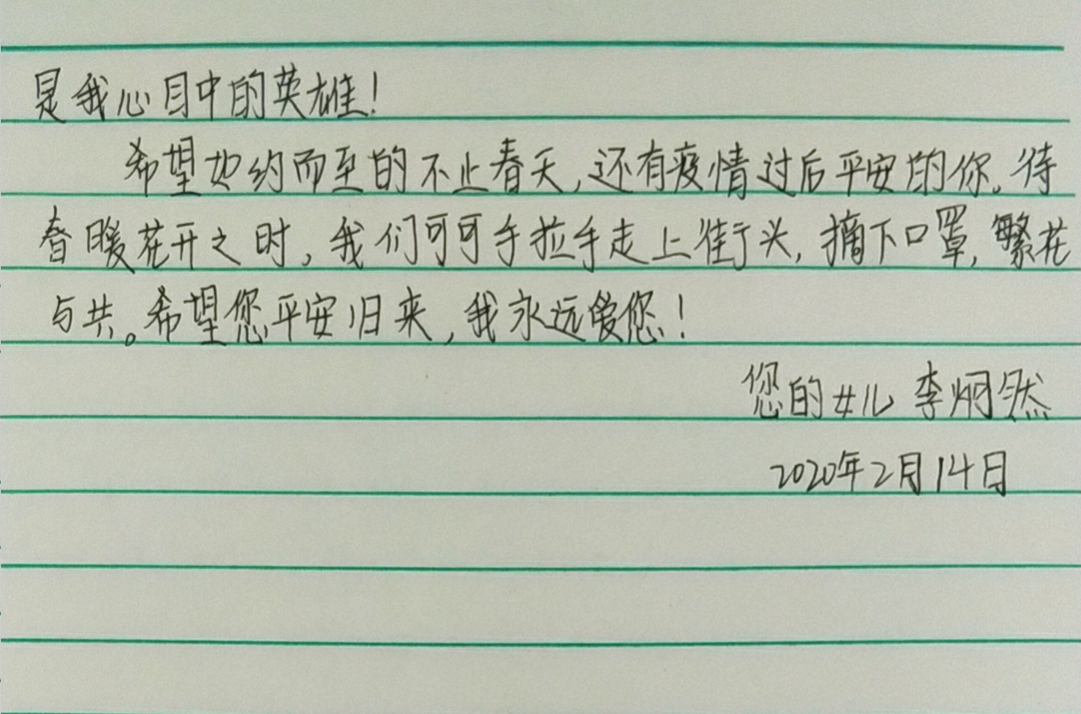 是我心目中的英雄!
希望如约而至的不止春天,还有疫情过后平安的你。待
春暖花开之时,我们可可手拉手走上街头,摘下口罩,繁花
与共。希望您平安归来,我永远爱您!
您的女儿 李炯然
2020年2月14日